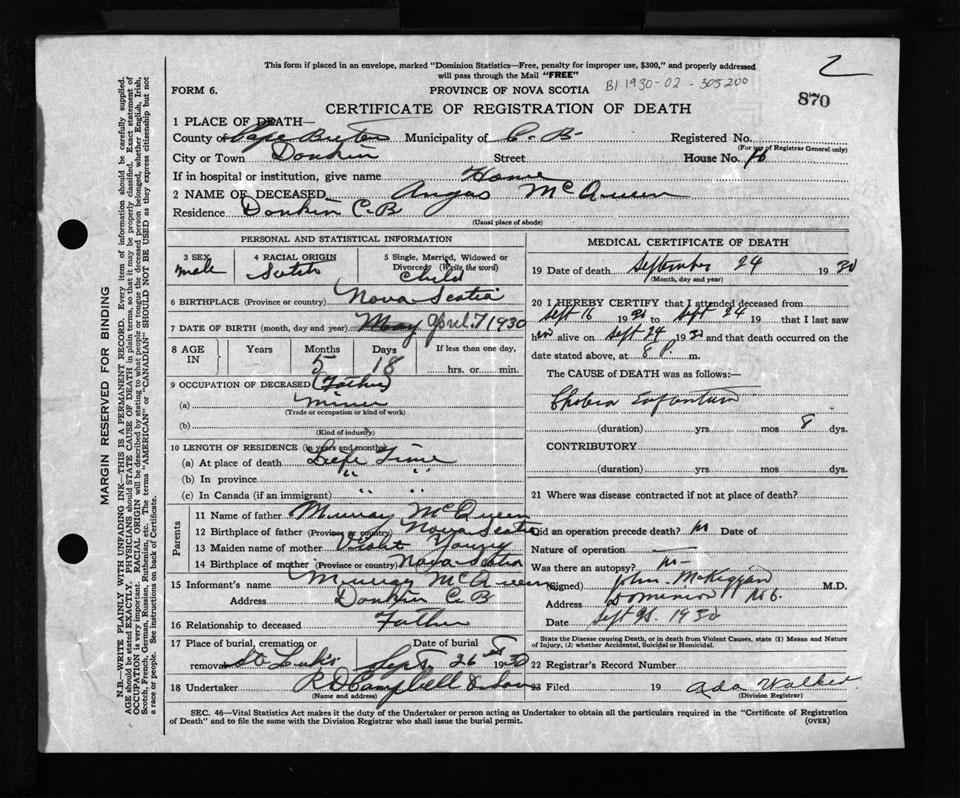 This form if placed in an envelope, marked "Dominion Statistics—Free, penalty for improper use, $300," and properly addressed
will pass through the Mail "FREE"
2
FORM 6. PROVINCE OF NOVA SCOTIA B1 1930-02-305200
870
CERTIFICATE OF REGISTRATION OF DEATH
1 PLACE OF DEATH—
County of Cape Breton Municipality of C.B. Registered No.
(For use of Registrar General only)
City or Town Donkin Street House No.
If in hospital or institution, give name Home
2 NAME OF DECEASED Angus McQueen
Residence Donkin C.B
(Usual place of abode)
PERSONAL AND STATISTICAL INFORMATION
3 SEX 4 RACIAL ORIGIN 5 Single, Married, Widowed or
Divorced (Write the word)
male Scotch Child
6 BIRTHPLACE (Province or country) Nova Scotia
7 DATE OF BIRTH (month, day and year) May April 7/1930
8 AGE IN Years Months Days If less than one day,
5 18 hrs. or min.
9 OCCUPATION OF DECEASED (Father)
(a) Miner
(Trade or occupation or kind of work)
(b)
(Kind of industry)
10 LENGTH OF RESIDENCE (in years and months)
(a) At place of death Life Time
(b) In province " "
(c) In Canada (if an immigrant) " "
Parents
11 Name of father Murray McQueen
12 Birthplace of father (Province or country) Nova Scotia
13 Maiden name of mother Young
14 Birthplace of mother (Province or country) Nova Scotia
15 Informant's name Murray McQueen
Address Donkin C.B
16 Relationship to deceased Father
17 Place of burial, cremation or Date of burial
removal St Lukes Sept 26 1930
18 Undertaker R D Campbell & Son
(Name and address)
MEDICAL CERTIFICATE OF DEATH
19 Date of death September 24 1930
(Month, day and year)
20 I HEREBY CERTIFY that I attended deceased from
Sept 16 1930 to Sept 24 19 that I last saw
him alive on Sept 24 1930 and that death occurred on the
date stated above, at 8 P. m.
The CAUSE of DEATH was as follows:—
Cholera Infantum
(duration) yrs mos 8 dys.
CONTRIBUTORY
(duration) yrs mos dys.
21 Where was disease contracted if not at place of death?
Did an operation precede death? no Date of
Nature of operation —
Was there an autopsy? no
(Signed) John McKiggan M.D.
Address Dominion N.S.
Date Sept 25 1930
State the Disease causing Death, or in death from Violent Causes, state (1) Means and Nature
of Injury, (2) whether Accidental, Suicidal or Homicidal.
22 Registrar's Record Number
23 Filed 19 Ada Walker
(Division Registrar)
SEC. 46—Vital Statistics Act makes it the duty of the Undertaker or person acting as Undertaker to obtain all the particulars required in the "Certificate of Registration
of Death" and to file the same with the Division Registrar who shall issue the burial permit. (OVER)
MARGIN RESERVED FOR BINDING
N.B.—WRITE PLAINLY WITH UNFADING INK—THIS IS A PERMANENT RECORD. Every item of information should be carefully supplied.
AGE should be stated EXACTLY. PHYSICIANS should STATE CAUSE OF DEATH in plain terms, so that it may be properly classified. Exact statement of
OCCUPATION is very important. RACIAL ORIGIN will be described by stating to what people or tongue the deceased person belonged, whether English, Irish,
Scotch, French, German, Russian, Ruthenian, etc. The terms "AMERICAN" or "CANADIAN" SHOULD NOT BE USED as they express citizenship but not
a race or people. See instructions on back of Certificate.